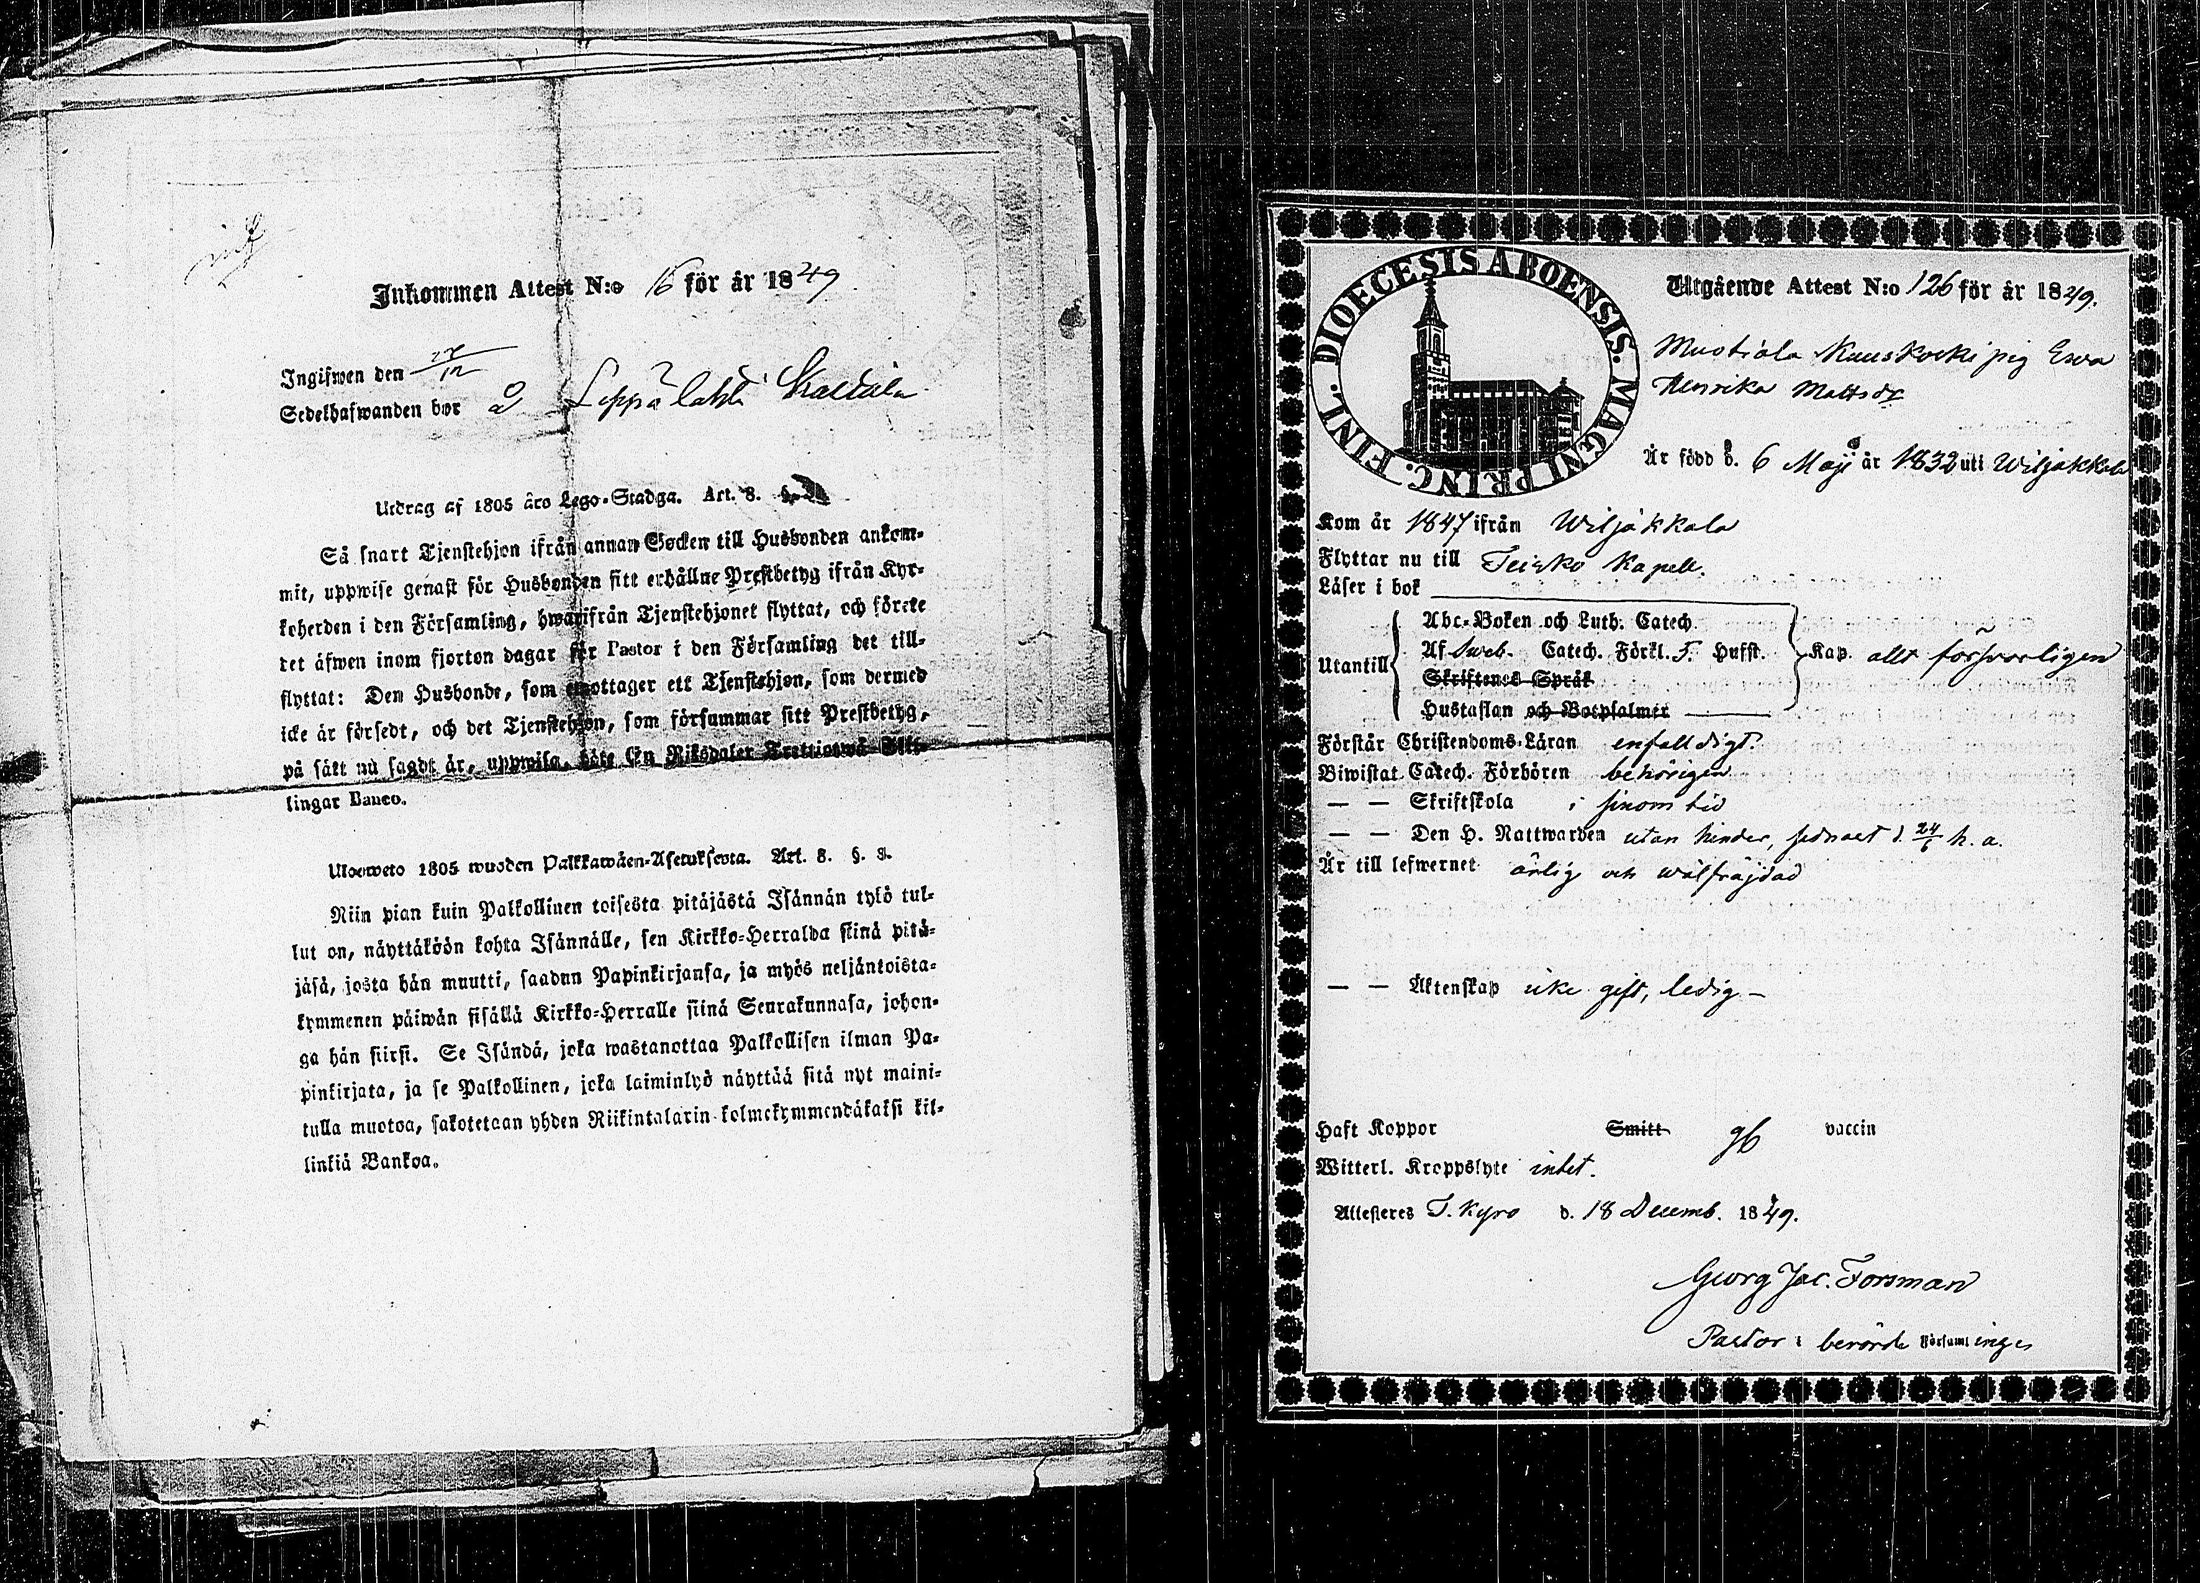 Inkommen Attest N:o 16 för år 1849
Ingifwen den /12
Sedelhafwanden bor å Leppälahti
Utdrag af 1805 års Lego-Stadga. Art. 8. §.
Så snart Tjenstehjon ifrån annan Socken till Husbonden ankom-
mit, uppwise genast för Husbonden sitt erhållne Prestbetyg ifrån Kyr-
koherden i den Församling, hwarifrån Tjenstehjonet flyttat, och förete
det äfwen inom fjorton dagar för Pastor i den Församling det till-
flyttat: Den Husbonde, som emottager ett Tjenstehjon, som dermed
icke är försedt, och det Tjenstehjon, som försummar sitt Prestbetyg,
på sätt nu sagdt är, uppwisa, böte En Riksdaler Trettiotwå Skil-
lingar Banco.
Ulosweto 1805 wuoden Palkkawäen-Asetuksesta. Art. 8. §. 3.
Niin pian kuin Palkollinen toisesta pitäjästä Isännän tykö tul-
lut on, näyttäköön kohta Isännälle, sen Kirkko-Herralda siinä pitä-
jäsä, josta hän muutti, saadun Papinkirjansa, ja myös neljäntoista-
kymmenen päiwän sisällä Kirkko-Herralle siinä Seurakunnasa, johon-
ga hän siirsi. Se Isändä, joka wastanottaa Palkollisen ilman Pa-
pinkirjata, ja se Palkollinen, joka laiminlyö näyttää sitä nyt maini-
tulla muotoa, sakotetaan yhden Riikintalarin kolmekymmendäkaksi kil-
linkiä Bankoa.
DIOECESIS ABOENSIS. MAGNI PRINC. FINL.
Utgående Attest N:o 126 för år 1849.
Muotiala Kuuskoski pig Ewa
Henrika Mattsdr
Är född d. 6 Maji år 1832 uti Wiljakkala
Kom år 1847 ifrån Wiljakkala
Flyttar nu till Teisko Kapell.
Läser i bok
Utantill
Abc-Boken och Luth. Catech.
Af Sweb. Catech. Förkl. 5. Hufst.
Skriftenes Språk
Hustaflan och Botpsalmer
Kap. allt förswarligen
Förstår Christendoms-Läran enfalldigt.
Biwistat Catech. Förhören behörigen
— — Skriftskola i sinom tid
— — Den H. Nattwarden utan hinder, sednast d. 24/6 h. a.
Är till lefwernet ärlig och wälfräjdad
— — Äktenskap icke gift, ledig —
Haft Koppor Smitt gb vaccin
Witterl. Kroppslyte intet.
Attesteres T. Kyro d. 18 Decemb. 1849.
Georg Jac. Forsman
Pastor i berörde Församlinges